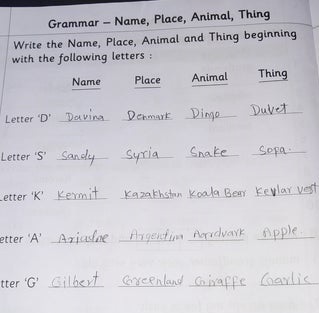 Grammar – Name, Place, Animal, Thing
Write the Name, Place, Animal and Thing beginning
with the following letters :
Name Place Animal Thing
Letter 'D' Davina Denmark Dingo Duvet
Letter 'S' Sandy Syria Snake Sopa.
Letter 'K' Kermit Kazakhstan Koala Bear Kevlar vest
etter 'A' Argentina Aardvark Apple.
tter 'G' Gilbert Greenland Giraffe Garlic